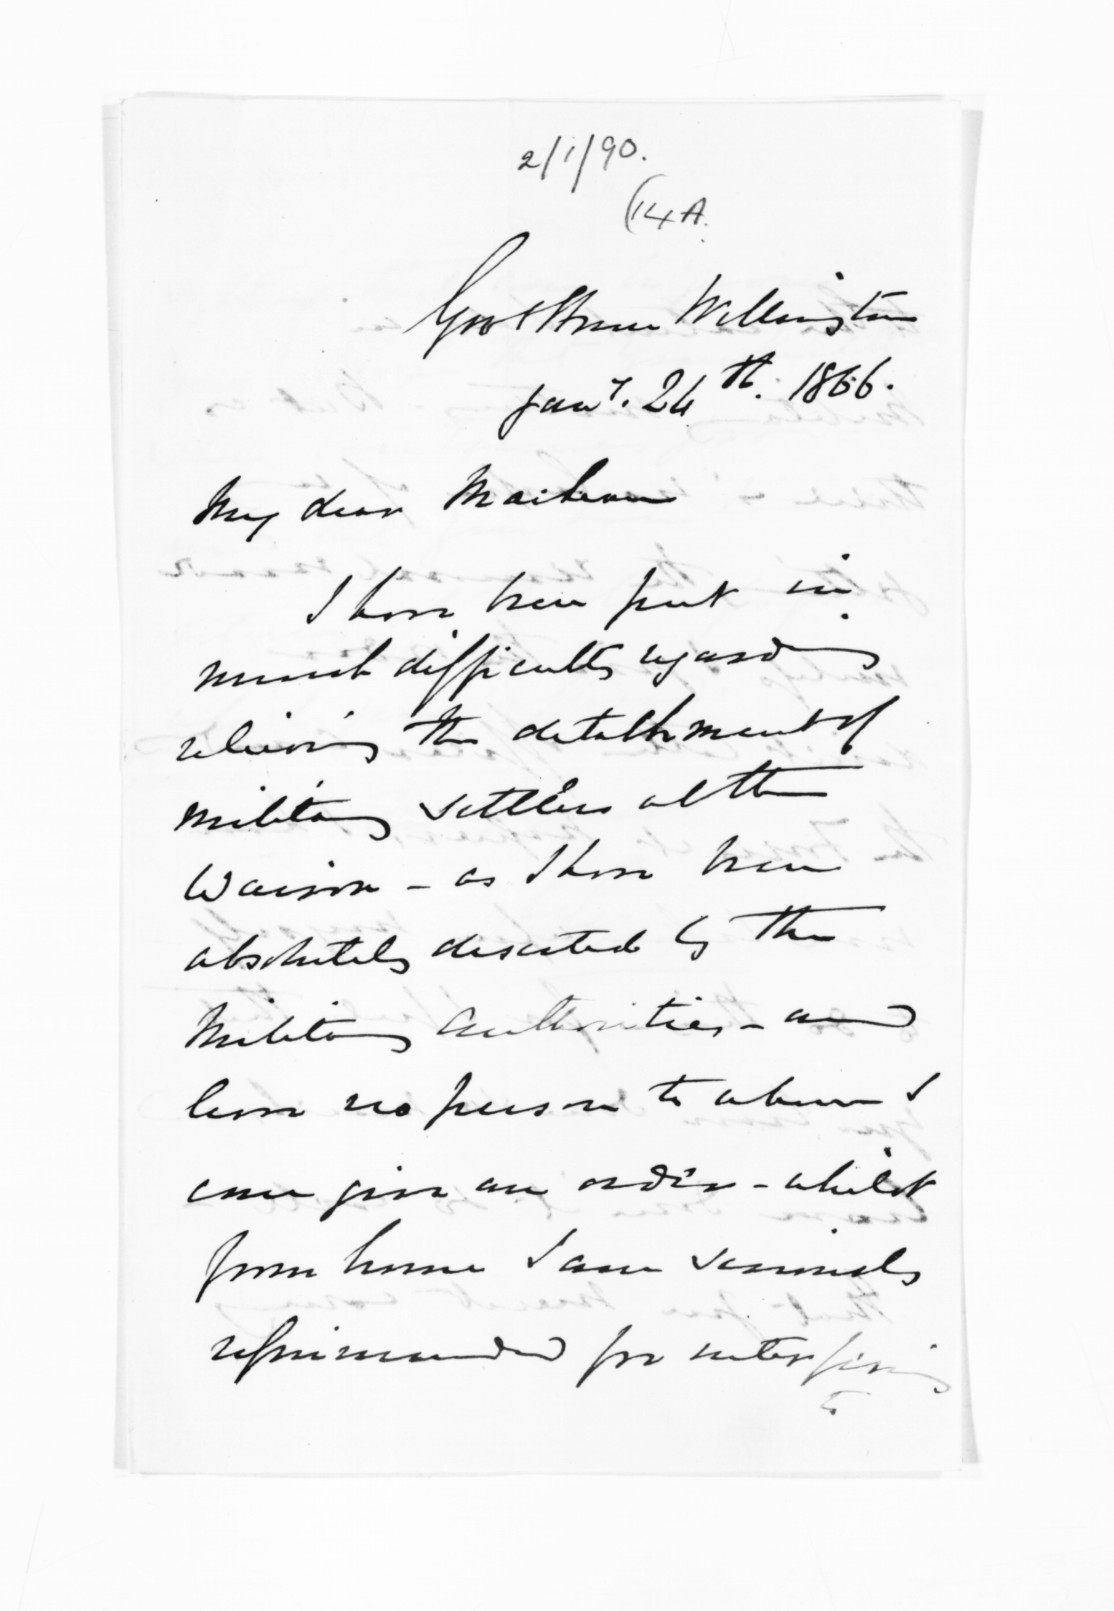 2/1/90.
(14A.
Govt House Wellington
Jany. 24th. 1866.
My dear McLean
I have been put in
much difficulty regarding
relieving the detachment of
Military settlers at the
Wairoa - as I have been
absolutely deserted by the
Military Authorities - and
have no person to whom I
can give an order - whilst
from home I am seriously
reprimanded for interfering
to